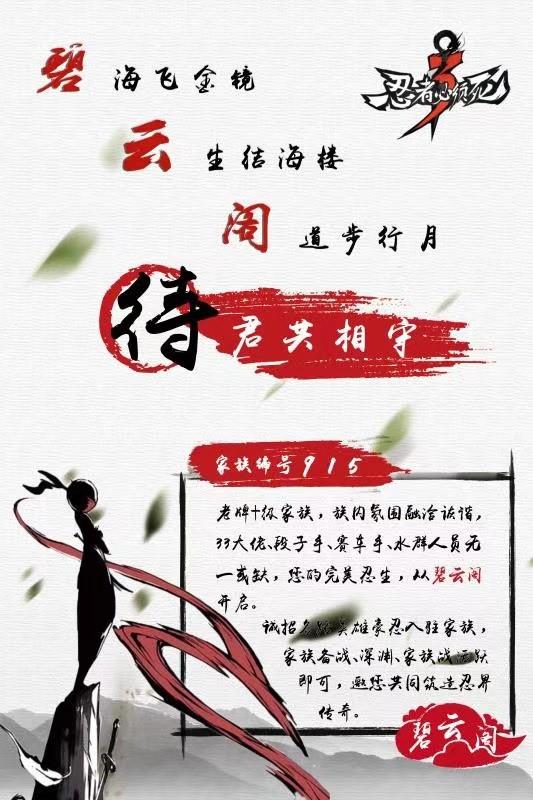 碧海飞金镜
忍者必须死
3
云生结海楼
阁道步行月
待君共相守
家族编号915
老牌十级家族，族内氛围融洽诙谐，
33大佬、段子手、赛车手、水群人员无
一或缺，您的完美忍生，从碧云阁
开启。
诚招各路英雄豪忍入驻家族，
家族备战、深渊、家族战活跃
即可，邀您共同筑造忍界
传奇。
碧云阁